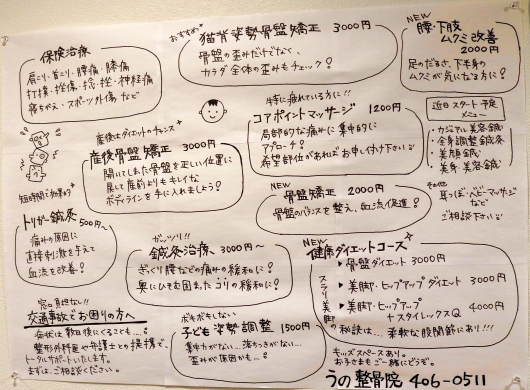 保険治療
肩こり・首こり・腰痛・膝痛
打撲・挫傷・捻挫・神経痛
寝ちがえ・スポーツ外傷 など
おすすめ
猫背姿勢骨盤矯正 3000円
骨盤の歪みだけでなく、
カラダ全体の歪みもチェック!
NEW
腰・下肢
ムクミ改善
2000円
足のだるさ、下半身の
ムクミが気になる方に!
産後はダイエットのチャンス
産後骨盤矯正 3000円
開いてしまった骨盤を正しい位置に
戻して産前よりもキレイな
ボディラインを手に入れましょう!
特に疲れている方に!!
コアポイントマッサージ 1200円
局部的な痛みに集中的に
アプローチ!
希望部位があればお申し付け下さい
近日スタート予定
メニュー
・カジュアル美容鍼
・全身調整鍼灸
・美顔鍼
・美身・美容鍼
その他
耳つぼ・ベビーマッサージ
など
ご相談下さい
NEW
骨盤矯正 2000円
骨盤のバランスを整え、血流促進!
短時間で効果的
トリガー鍼灸
500円~
痛みの原因に
直接刺激を与えて
血流を改善!
ガッツリ!!
鍼灸治療 3000円~
ぎっくり腰などの痛みの緩和に!
奥にひそむ固まったコリの緩和に!
NEW
健康ダイエットコース
▶骨盤ダイエット 3000円
▶美脚・ヒップアップ ダイエット 3000円
▶美脚・ヒップアップ
+スタイレックスQ 4000円
スラリ美脚
の秘訣は…. 柔軟な股関節にあり!!
窓口負担なし!!
交通事故でお困りの方へ
症状は数日後にくることも…。
整形外科医や弁護士との提携で、
トータルサポートいたします。
まずはご相談ください。
ボキボキしない
子ども姿勢調整 1500円
集中力がない… 落ちつきがない…
歪みが原因かも…。
キッズスペースあり。
お子さまもご一緒にどうぞ。
うの整骨院 406-0511